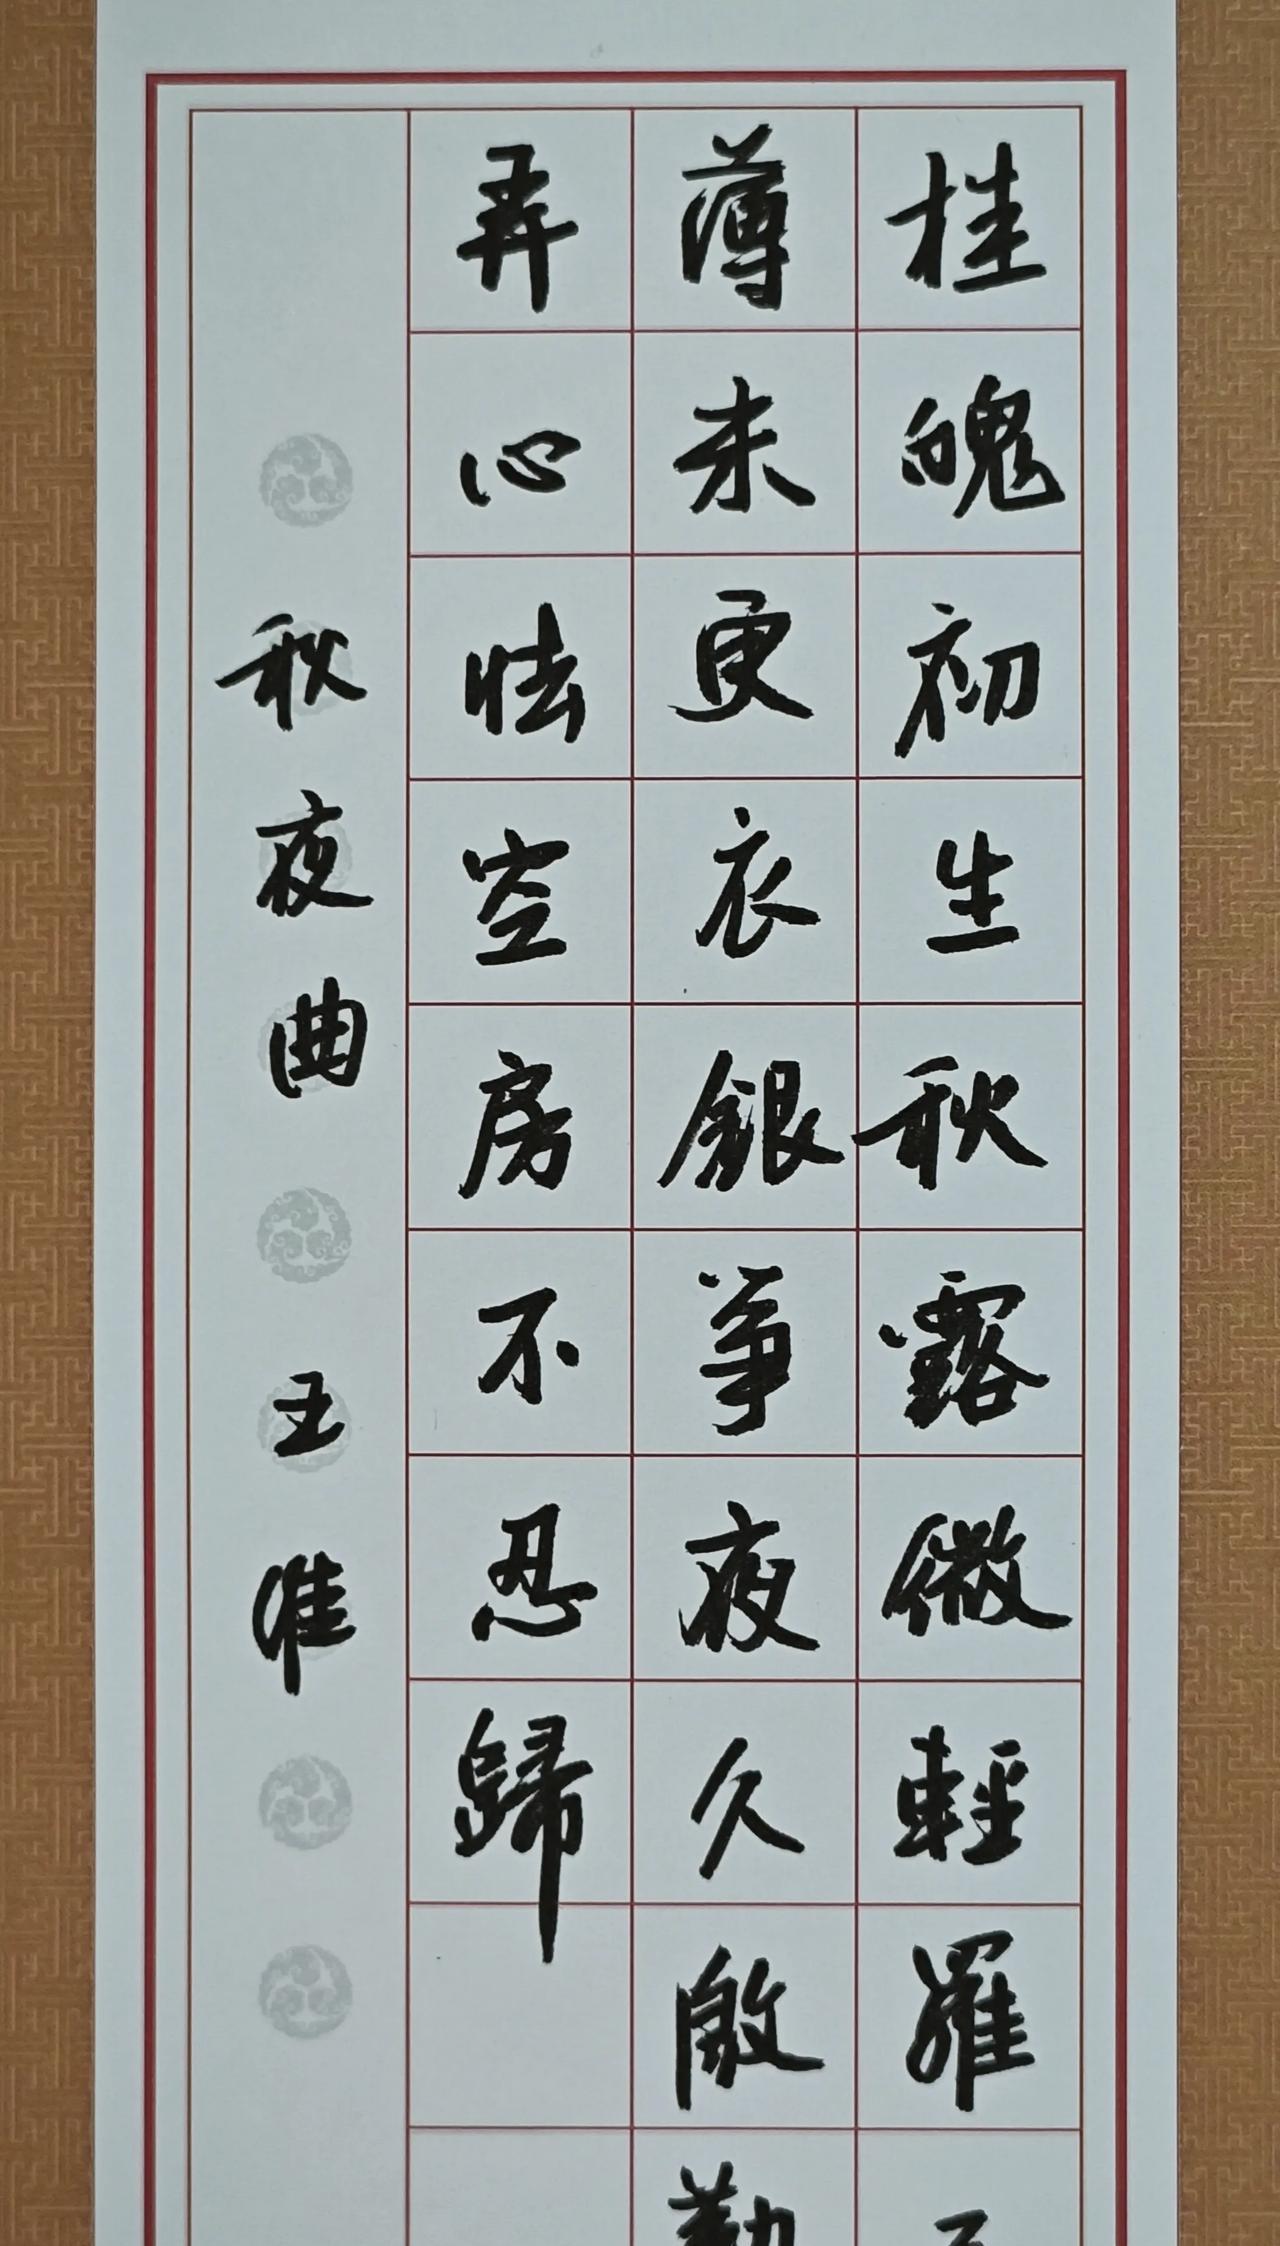 桂魄初生秋露微輕羅
薄未更衣銀箏夜久殷勤
弄心怯空房不忍歸
秋夜曲 王維